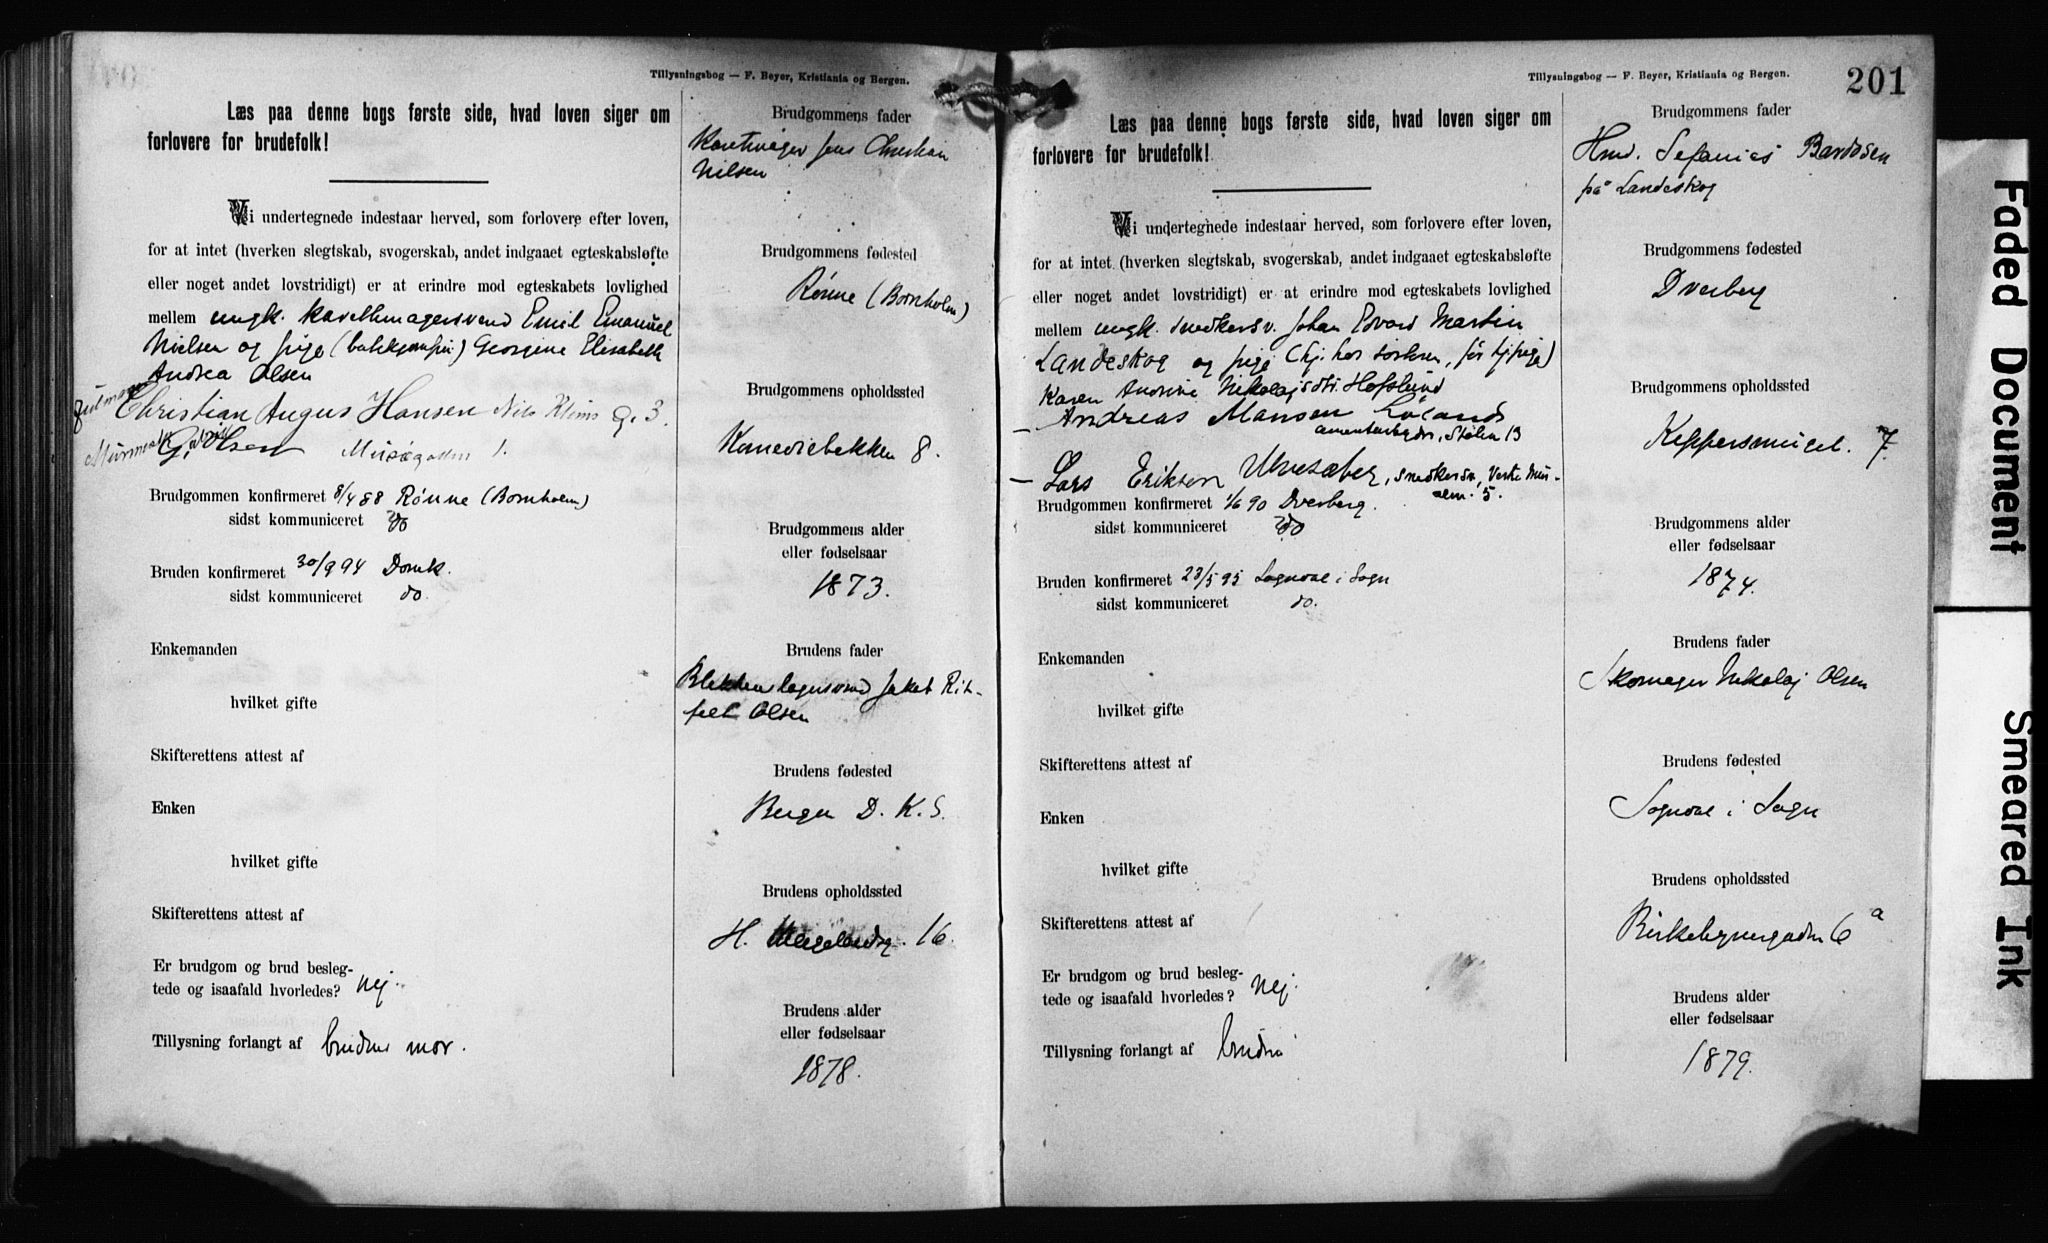 Tillysningsbog — F. Beyer, Kristiania og Bergen.
Læs paa denne bogs første side, hvad loven siger om
forlovere for brudefolk!
Vi undertegnede indestaar herved, som forlovere efter loven,
for at intet (hverken slegtskab, svogerskab, andet indgaaet egteskabsløfte
eller noget andet lovstridigt) er at erindre mod egteskabets lovlighed
mellem ungk. Emil Emanuel
Nielsen og pige Georgine Elisabeth
Andrea Olsen
Christian Augus Hansen Nils Klims G. 3.
G. Olsen 1.
Brudgommen konfirmeret 8/4 88 Rønne (Bornholm)
sidst kommuniceret do
Bruden konfirmeret 30/9 94 Domk.
sidst kommuniceret do.
Enkemanden
hvilket gifte
Skifterettens attest af
Enken
hvilket gifte
Skifterettens attest af
Er brudgom og brud besleg-
tede og isaafald hvorledes? Nej.
Tillysning forlangt af brudens mor.
Brudgommens fader
Jens Christian
Nilsen
Brudgommens fødested
Rønne (Bornholm)
Brudgommens opholdssted
Komediebakken 8.
Brudgommens alder
eller fødselsaar
1873.
Brudens fader
Jakob Rit-
Olsen
Brudens fødested
Bergen D. K. S.
Brudens opholdssted
H. 16.
Brudens alder
eller fødselsaar
1878.
Tillysningsbog — F. Beyer, Kristiania og Bergen.
201
Læs paa denne bogs første side, hvad loven siger om
forlovere for brudefolk!
Vi undertegnede indestaar herved, som forlovere efter loven,
for at intet (hverken slegtskab, svogerskab, andet indgaaet egteskabsløfte
eller noget andet lovstridigt) er at erindre mod egteskabets lovlighed
mellem ungk. snedkersv. Johan Edvard Martin
Landeskog og pige (hj. hos før tj.pige)
Karen Andrine Nikolajsdtr. Hofslund
Andreas Mansen
Stølen 13
Lars Eriksen Ulvesæter, snedkersv,
5.
Brudgommen konfirmeret 1/6 90 Dverberg.
sidst kommuniceret do
Bruden konfirmeret 23/5 95 Sogndal i Sogn
sidst kommuniceret do.
Enkemanden
hvilket gifte
Skifterettens attest af
Enken
hvilket gifte
Skifterettens attest af
Er brudgom og brud besleg-
tede og isaafald hvorledes? Nej.
Tillysning forlangt af bruden
Brudgommens fader
Hmd. Sefanias Bardosen
på Landeskog
Brudgommens fødested
Dverberg
Brudgommens opholdssted
Keppersmuget. 7.
Brudgommens alder
eller fødselsaar
1874.
Brudens fader
Skomager Nikolaj Olsen
Brudens fødested
Sogndal i Sogn
Brudens opholdssted
Birkebeynergaden 6 a
Brudens alder
eller fødselsaar
1879.
Faded Document
Smeared Ink